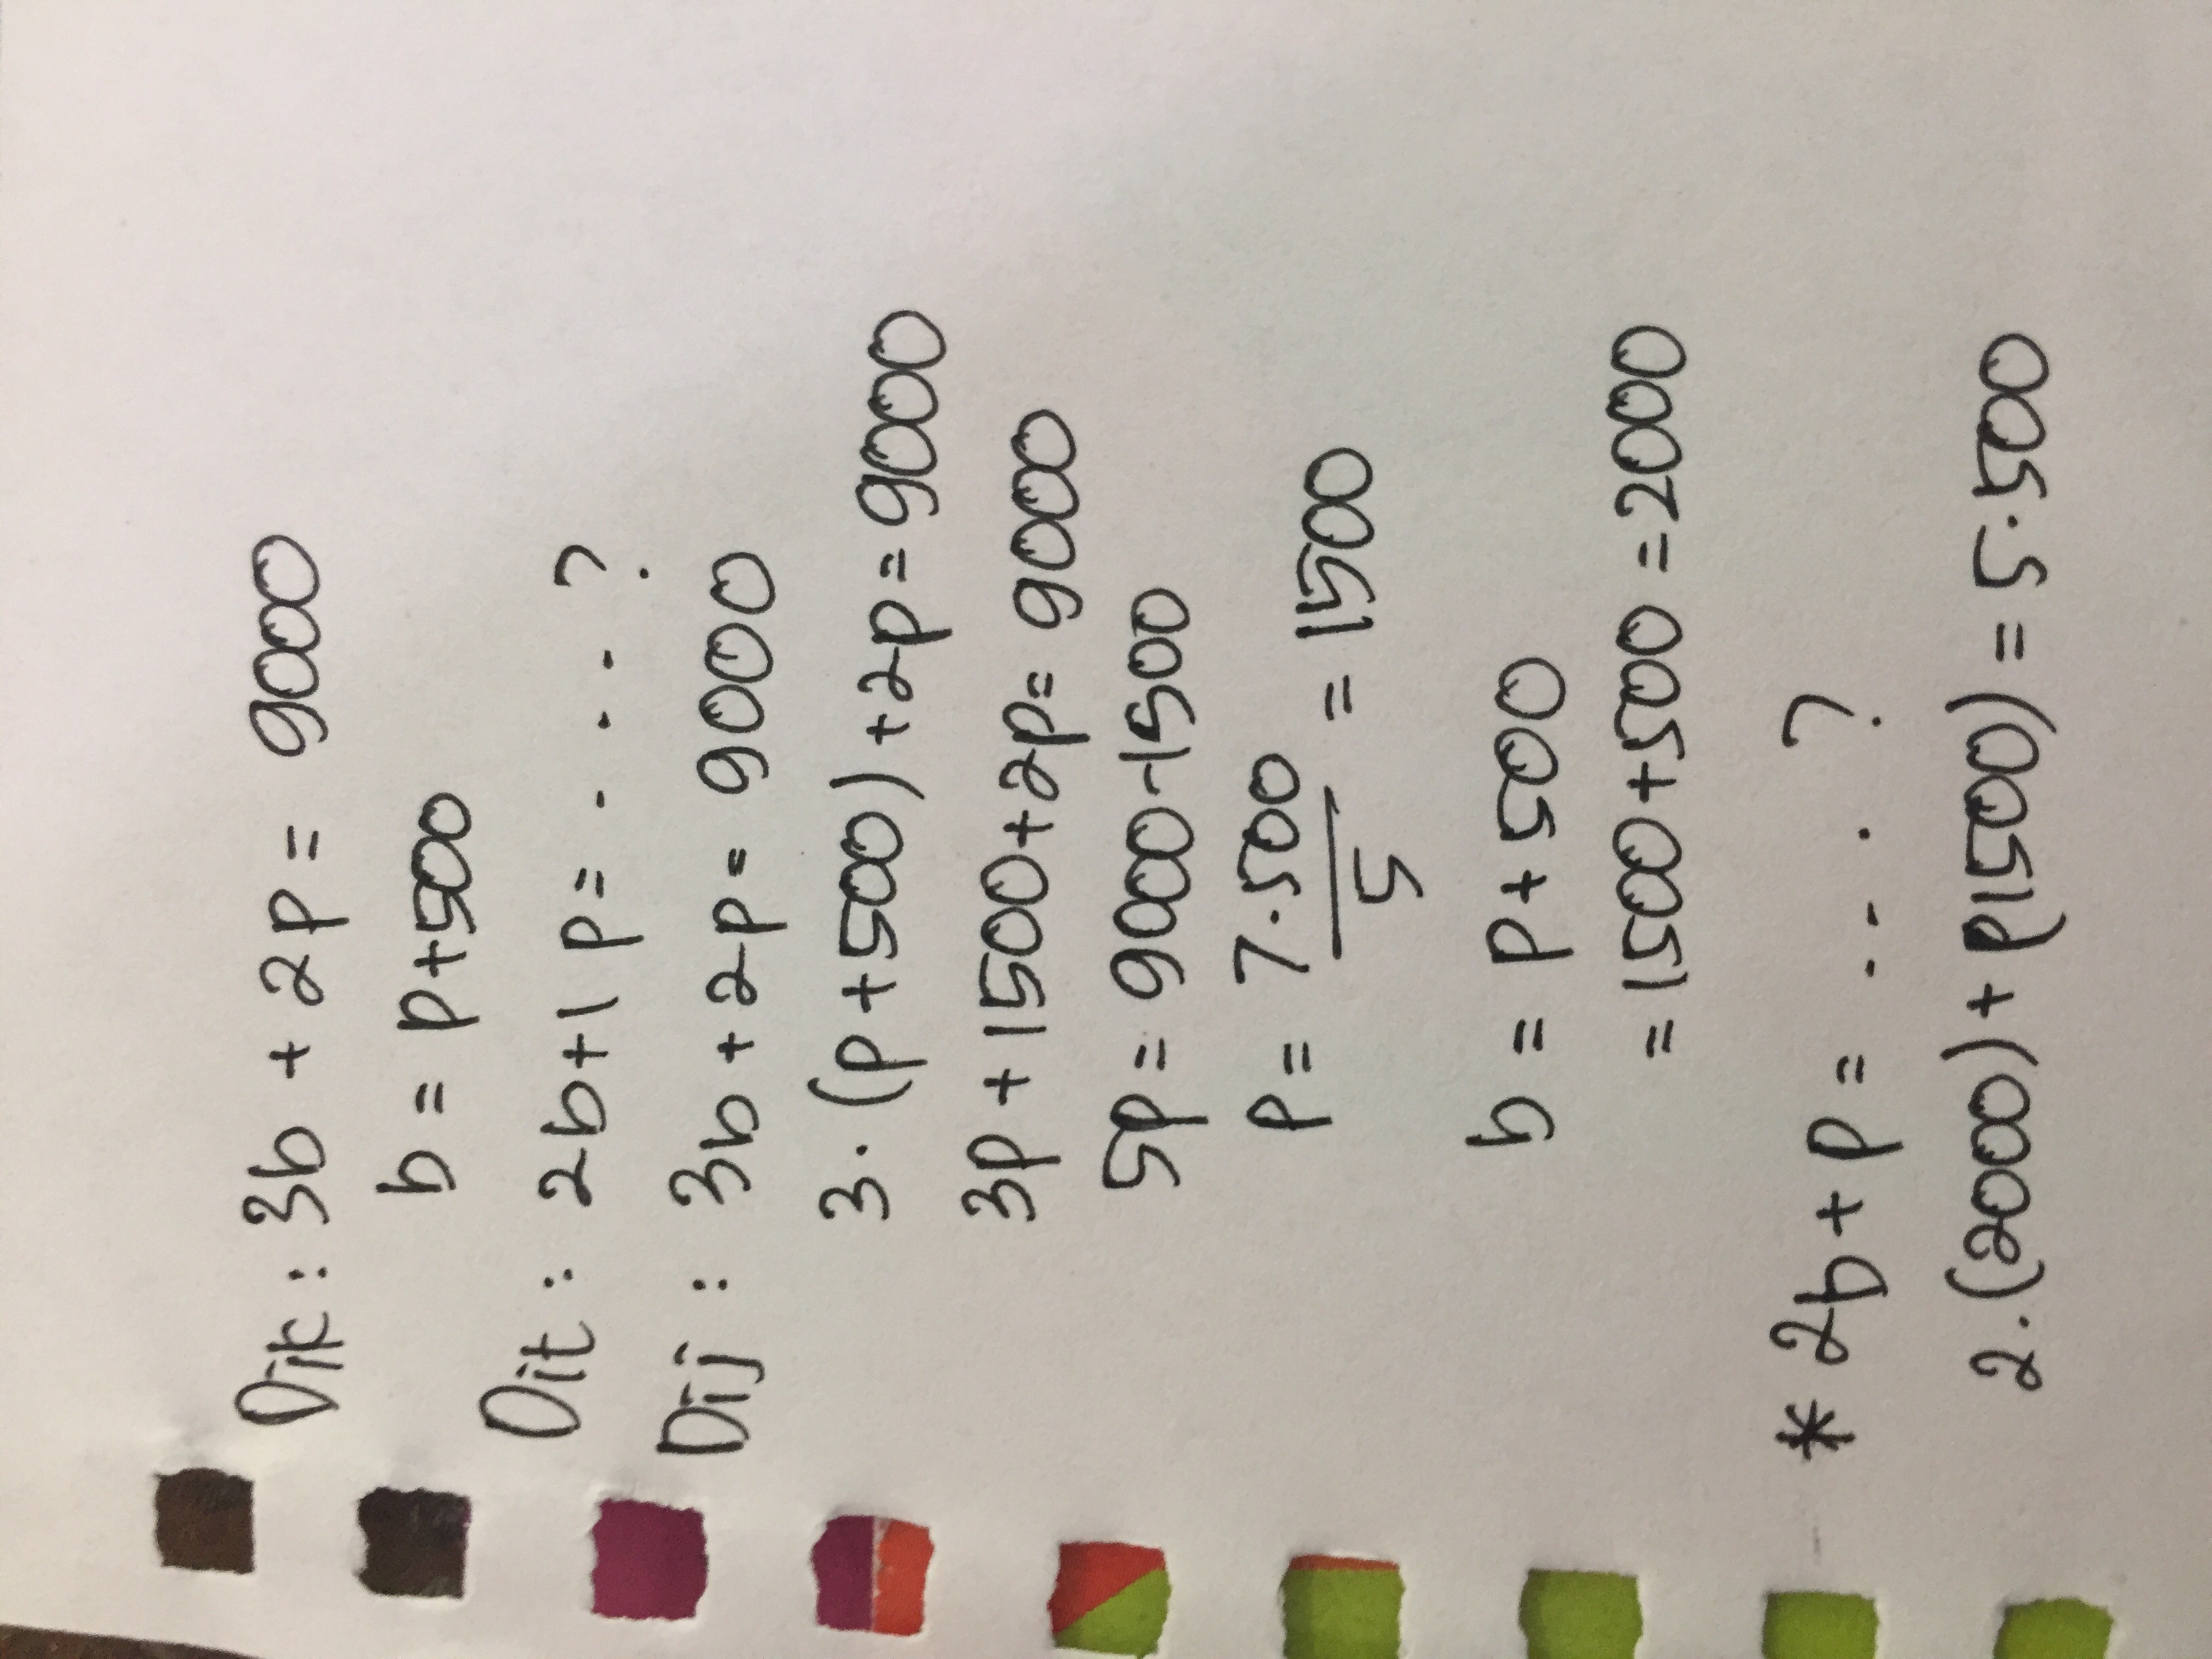 Dik : 3b + 2p = 9000
b = p+500
Dit : 2b+1 p = . . . ?
Dij : 3b + 2p = 9000
3. (p+500) + 2p = 9000
3p + 1500 + 2p = 9000
5p = 9000-1500
p = 7.500/5 = 1500
b = p + 500
= 1500 + 500 = 2000
* 2b + p = . . . ?
2. (2000) + (1500) = 5.500